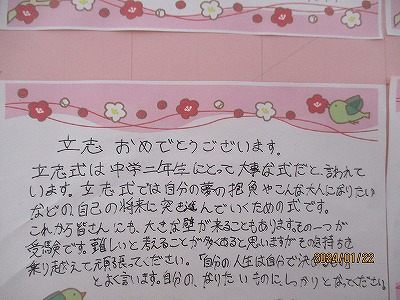 立志 おめでとうございます。
立志式は中学二年生にとって大事な式だと、言われて
います。立志式では自分の夢の抱負やこんな大人になりたい
などの、自己の将来に突き進んでいくための式です。
これから皆さんにも、大きな壁が来ることもあります。その一つが
受験です。難しいと考えることが多くあると思いますがその気持ちを
乗り越えて頑張ってください。「自分の人生は自分で決める
とよく言います。自分の、なりたいものに、しっかりとなってください。
2024/01/22